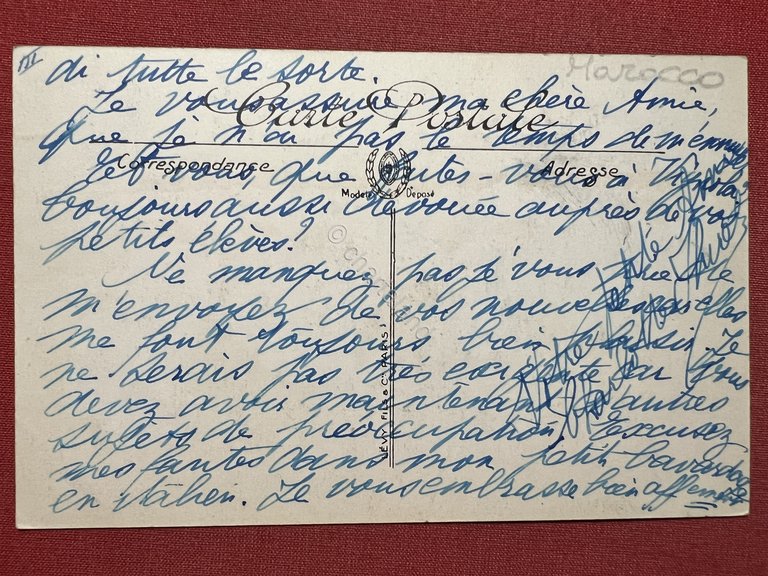 III
Marocco
di tutte le sorte.
Je vous assure, ma chère Amie,
Carte Postale
que je n'ai pas le temps de m'ennuyer
Correspondance
Adresse
Et vous, que faites-vous à
Modèle Déposé
toujours aussi dévouée auprès de vos
petits élèves?
Ne manquez pas, je vous prie de
m'envoyer de vos nouvelles car elles
me font toujours bien plaisir. Je
ne serais pas très exigeante car vous
devez avoir maintenant d'autres
sujets de préoccupation. Excusez
mes fautes dans mon petit bavardage
en italien. Je vous embrasse bien affement
LÉVY FILS & Cie PARIS
Votre